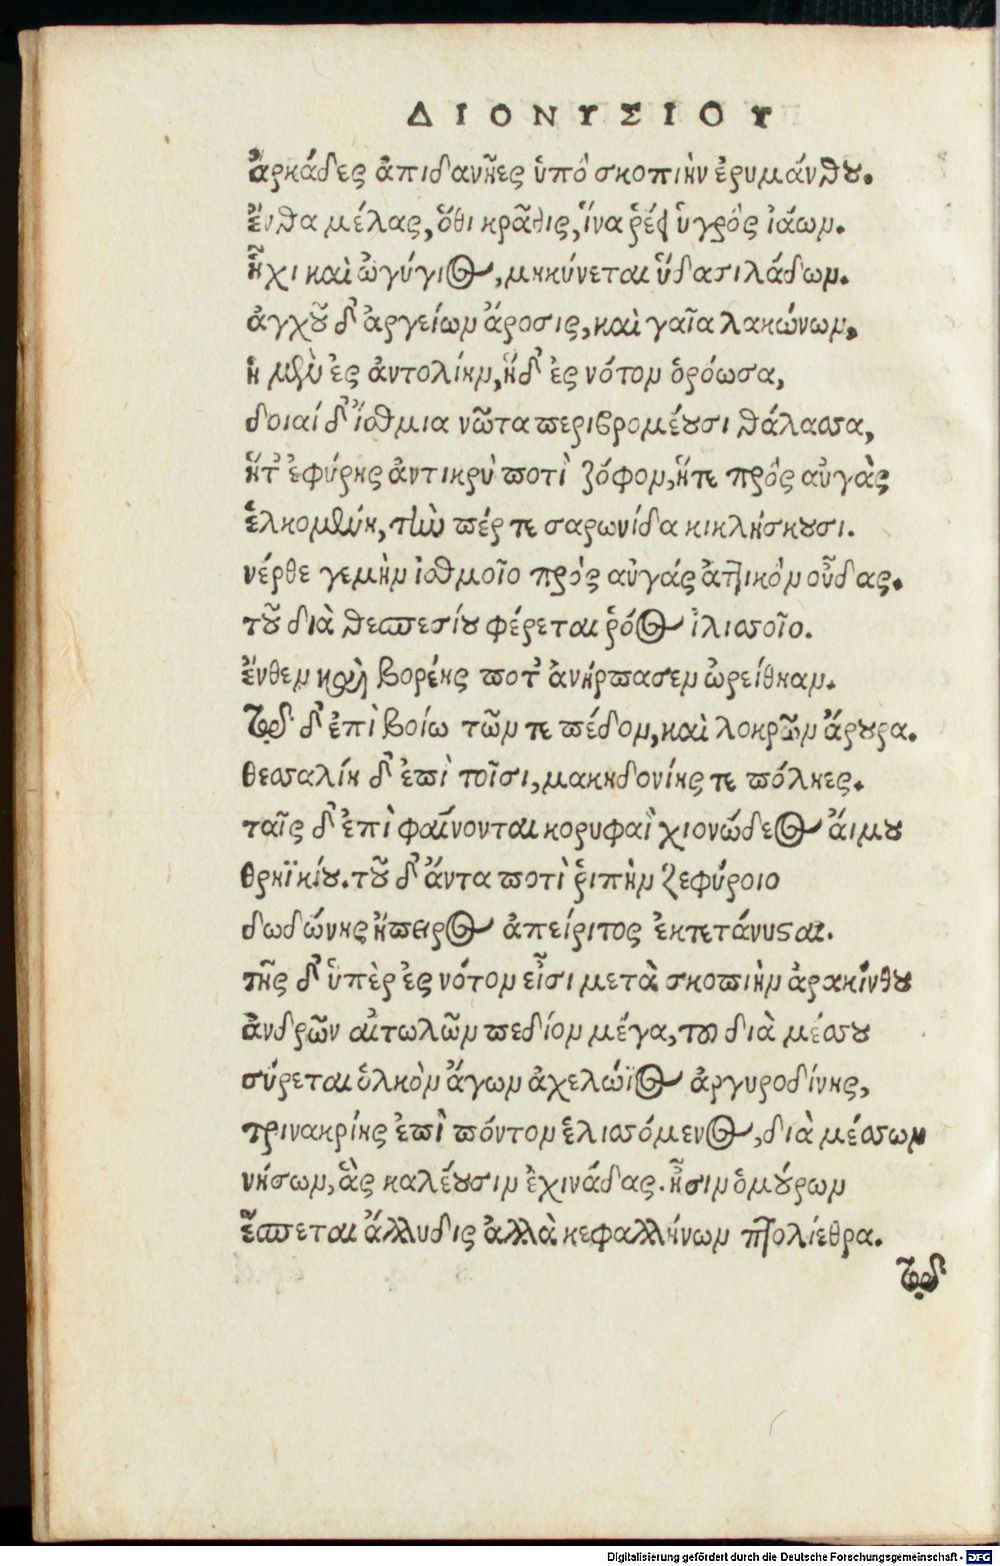 ΔΙΟΝΥΣΙΟΥ
ἄρκάδες ἀπιδανῆες ὑπὸ σκοπιὴν ἐρυμάνθου.
ἔνθα μέλας, ὅθι κρᾶθις, ἵνα ῥέει ὑγρὸς ἰάων.
ἧχι καὶ ὠγύγιος, μηκύνεται ὕδασι λάδων.
ἀγχοῦ δ' ἀργείων ἄροσις, καὶ γαῖα λακώνων,
ἡ μὲν ἐς ἀντολίην, ἥδ' ἐς νότον ὁρόωσα,
δοιαί δ' ἴσθμια νῶτα περιβρομέουσι θάλασσα,
ἥτ' ἐφύρης ἀντικρὺ ποτὶ ζόφον, ἥτε πρὸς αὐγὰς
ἑλκομένη, τὴν πέρ τε σαρωνίδα κικλήσκουσι.
νέρθε γεμὴν ἰσθμοῖο πρὸς αὐγάς ἀττικὸν οὖδας.
τοῦ διὰ θεσπεσίου φέρεται ῥόος ἰλισσοῖο.
ἔνθεν καὶ βορέης ποτ' ἀνήρπασεν ὠρείθηαν.
Τῷ δ' ἐπὶ βοίω τῶν τε πέδον, καὶ λοκρῶν ἄρουρα.
θεσσαλίη δ' ἐπὶ τοῖσι, μακηδονίης τε πόληες.
ταῖς δ' ἐπὶ φαίνονται κορυφαὶ χιονώδεος ἅιμου
θρηϊκίου. τοῦ δ' ἄντα ποτὶ ῥιπὴν ζεφύροιο
δωδώνης ἤπειρος ἀπείριτος ἐκτετάνυσαι.
τῆς δ' ὑπὲρ ἐς νότον εἶσι μετὰ σκοπιὴν ἀρακίνθου
ἀνδρῶν αἰτωλῶν πεδίον μέγα, του διὰ μέσσου
σύρεται ὁλκὸν ἄγων ἀχελώϊος ἀργυροδίνης,
τρινακρίης ἐπὶ πόντον ἑλισσόμενος, διὰ μέσσων
νήσων, ἃς καλέουσιν ἐχινάδας. ᾗσιν ὁμούρων
ἕσπεται ἄλλυδις ἀλλὰ κεφαλλήνων πτολίεθρα.
Τῷ δ'
Digitalisierung gefördert durch die Deutsche Forschungsgemeinschaft - DFG